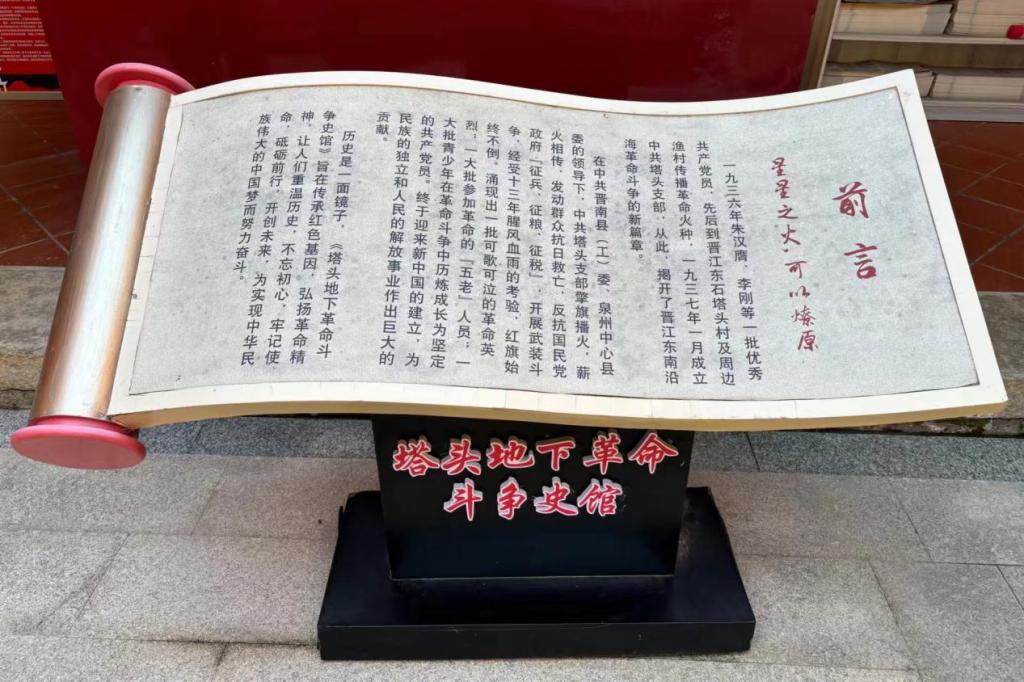 前言
星星之火·可以燎原
一九三六年朱汉膺，李刚等一批优秀
共产党员，先后到晋江东石塔头村及周边
渔村传播革命火种，一九三七年一月成立
中共塔头支部，从此，揭开了晋江东南沿
海革命斗争的新篇章。
在中共晋南县（工）委、泉州中心县
委的领导下，中共塔头支部擎旗播火，薪
火相传，发动群众抗日救亡，反抗国民党
政府『征兵、征粮、征税』，开展武装斗
争，经受十三年腥风血雨的考验，红旗始
终不倒。涌现出一批可歌可泣的革命英
烈；一大批参加革命的『五老』人员；一
大批青少年在革命斗争中历炼成长为坚定
的共产党员。终于迎来新中国的建立，为
民族的独立和人民的解放事业作出巨大的
贡献。
历史是一面镜子，《塔头地下革命斗
争史馆》旨在传承红色基因，弘扬革命精
神，让人们重温历史，不忘初心，牢记使
命，砥砺前行，开创未来，为实现中华民
族伟大的中国梦而努力奋斗。
塔头地下革命
斗争史馆